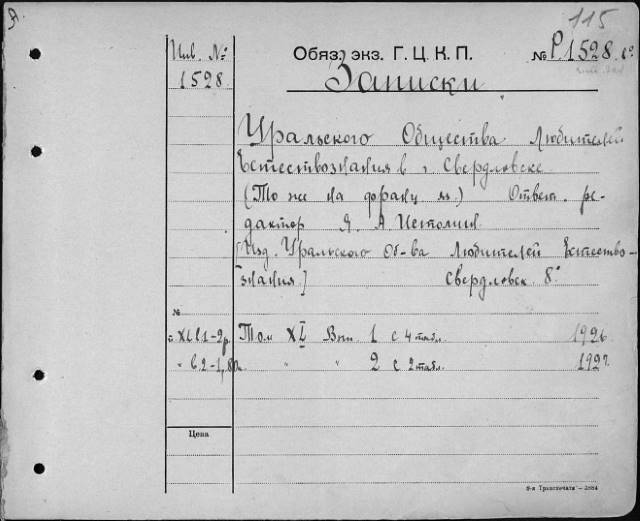 Я.
115
Инв. №
1528
Обяз. экз. Г.Ц.К.П.
№ Р1528
Записки
Уральского Общества Любителей
Естествознания в г. Свердловске
(То же на франц. яз.) Ответ. ре-
дактор Я. А. Истомин
[Изд. Уральского Об-ва Любителей Естество-
знания.] Свердловск. 8°
№
XL в 1-2р. Том XL Вып. 1 с 4 табл. 1926.
" в 2-1,80к. " " 2 с 2 табл. 1927.
Цена
8-я Транспечати — 2884